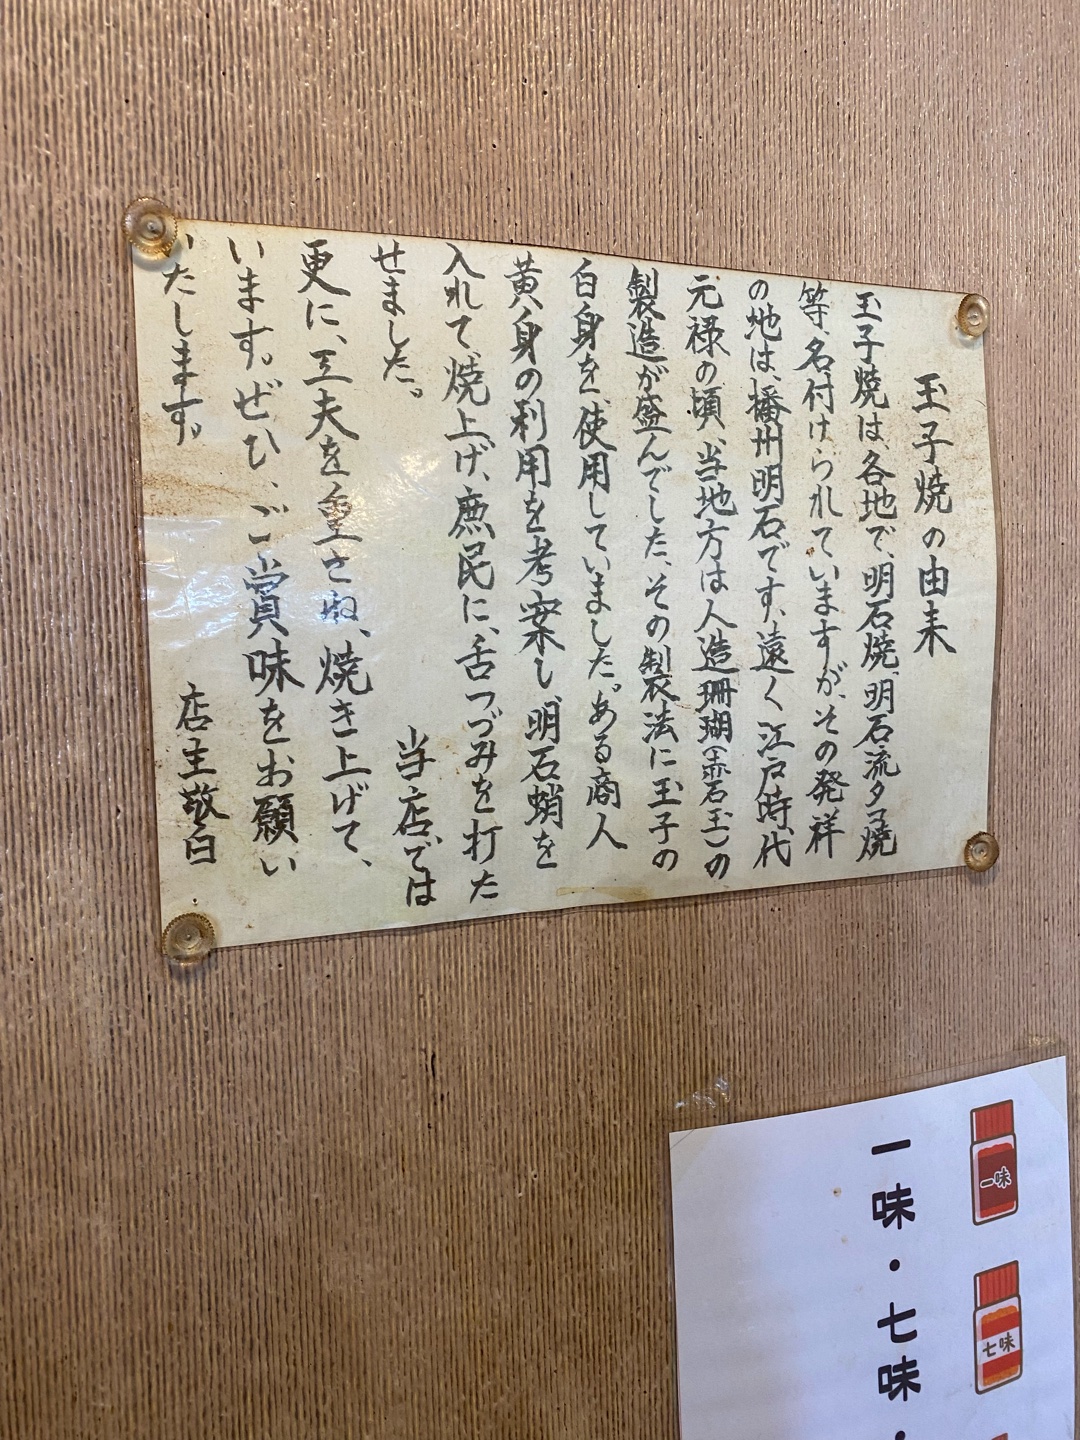 玉子焼の由来
玉子焼は、各地で、明石焼、明石流タコ焼
等、名付けられていますが、その発祥
の地は、播州明石です、遠く江戸時代
元禄の頃、当地方は人造珊瑚(赤石玉)の
製造が盛んでした、その製法に玉子の
白身を、使用していました。ある商人
黄身の利用を考案し、明石蛸を
入れて、焼上げ、庶民に、舌つづみを打た
せました。
当店では
更に、工夫を重さね、焼き上げて、
います。ぜひ、ご賞味をお願い
いたします。
店主敬白
一味・七味・
一味
七味